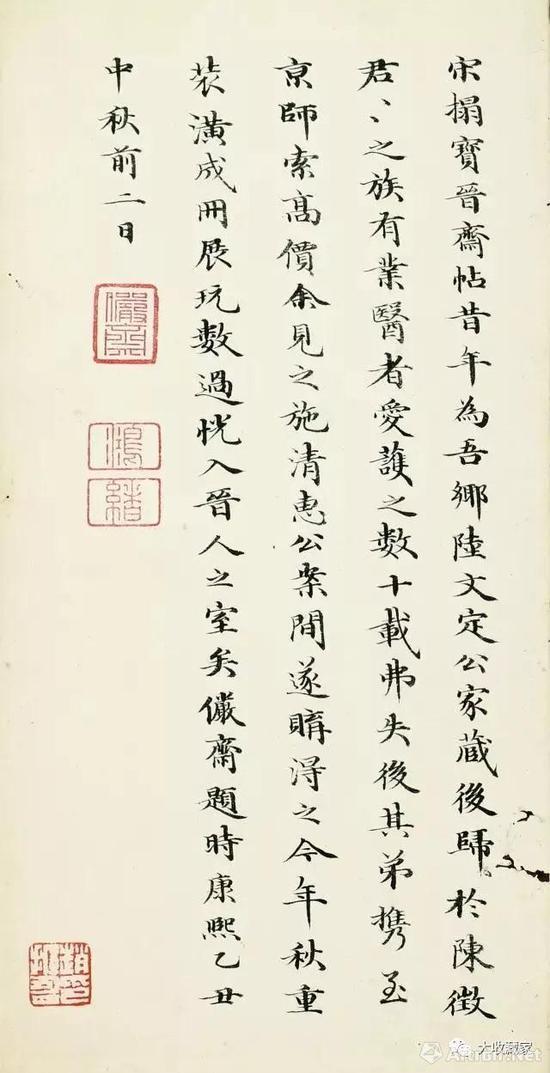 宋搨寶晉齋帖昔年為吾鄉陸文定公家蔵後歸於陳徵
君〻之族有業醫者愛護之數十載弗失後其弟攜至
京師索高價余見之施清惠公案間遂購淂之今年秋重
装潢成冊展玩數過恍入晉人之室矣儼齋題時康熙乙丑
中秋前二日
儼齋
鴻緒
大收藏家
Artron.Net